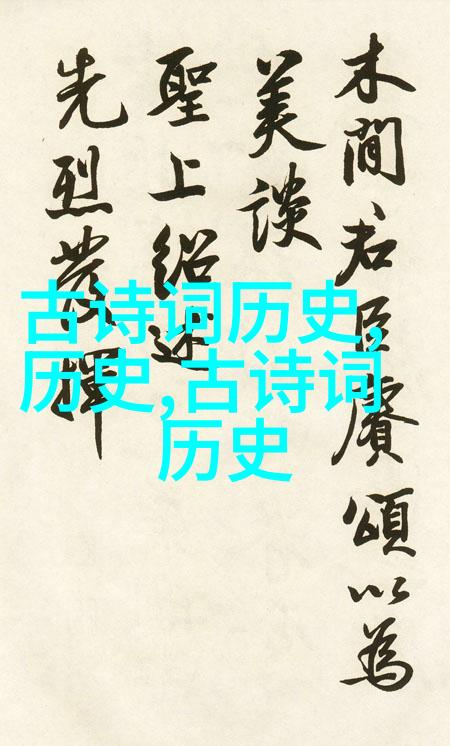 木間君臣賡頌以為
美談
聖上紹述
先烈發揮
古诗词历史,
历史,古诗词
历史